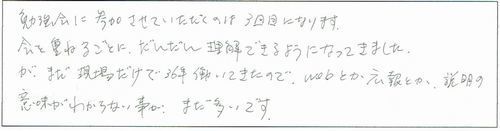 勉強会に参加させていただくのは3回目になります。
会を重ねるごとに、だんだん理解できるようになってきました。
が、まだ現場だけで36年働いてきたので、webとか広報とか、説明の
意味がわからない事が、まだ多いです。